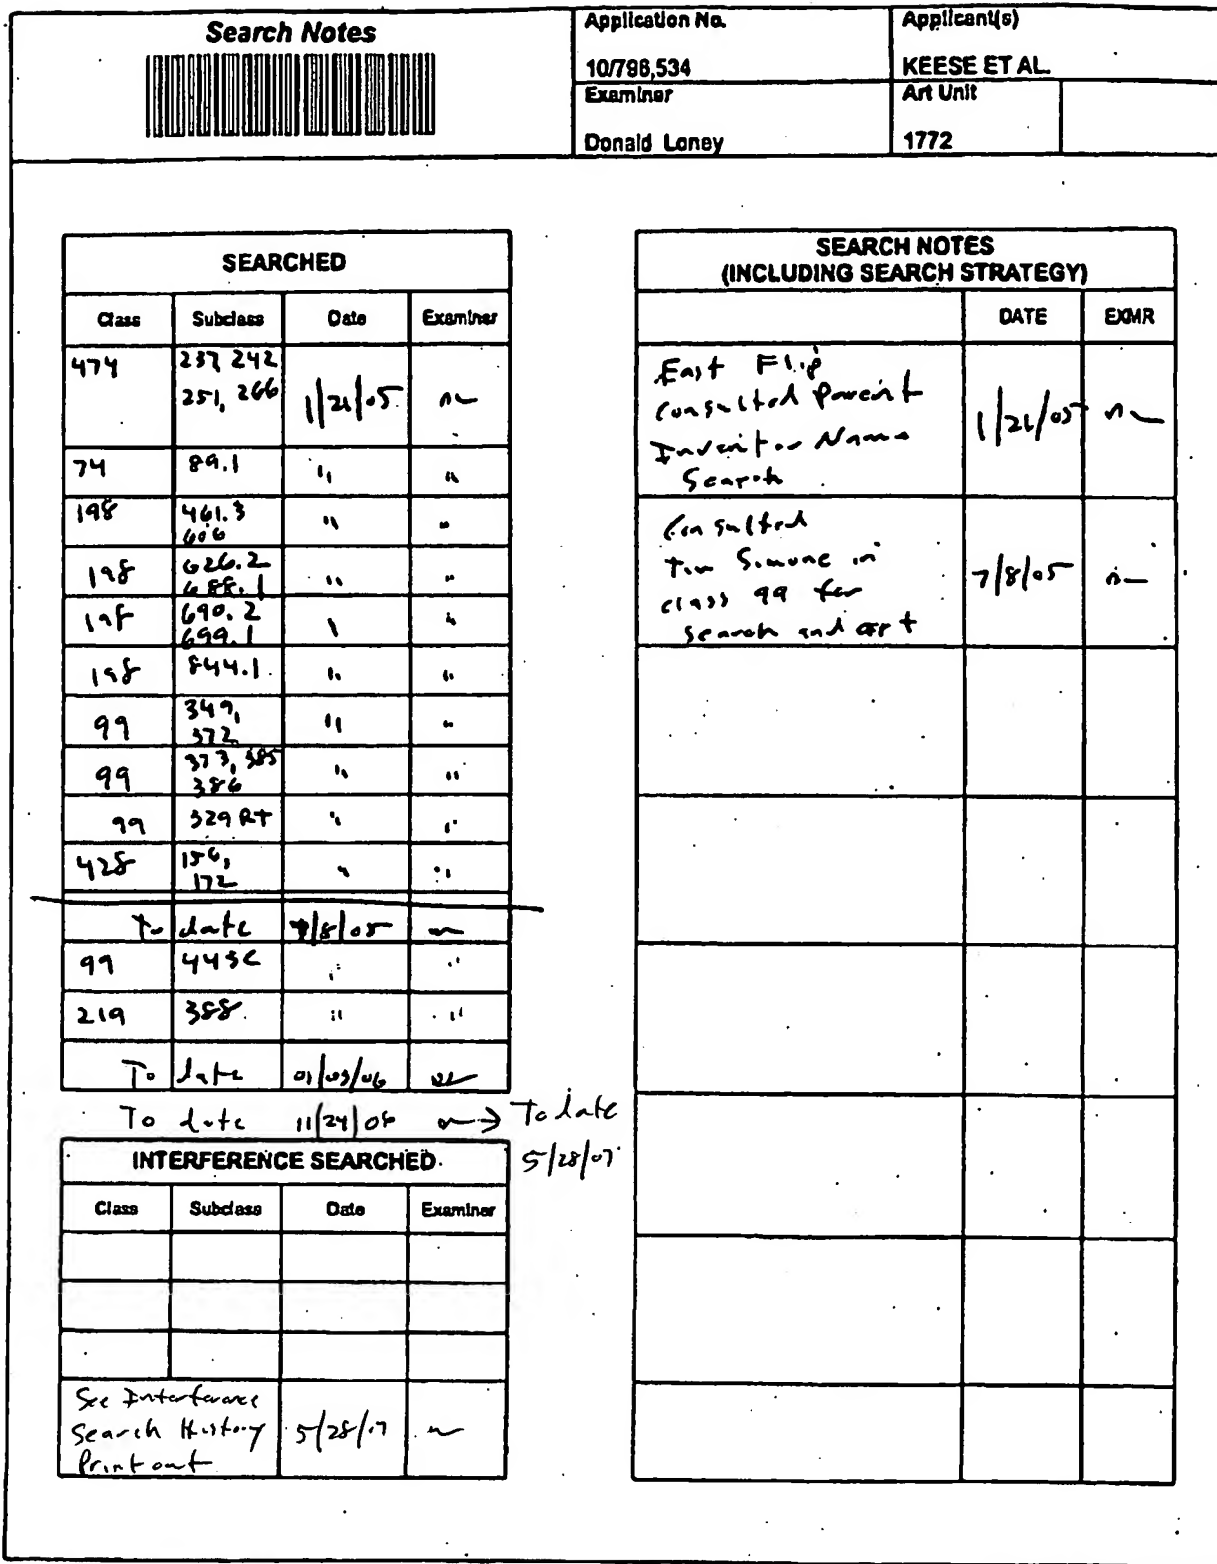 Search Notes
Application No.
10/798,534
Applicant(s)
KEESE ET AL.
Examiner
Donald Loney
Art Unit
1772
SEARCHED
Class Subclass Date Examiner
474 237, 242
251, 266 1/21/05
74 89.1 " "
198 461.3
606 " "
198 626.2
688.1 " "
198 690.2
699.1 "
198 844.1 " "
99 349,
372 " "
99 373, 385
386 " "
99 329 RT " "
428 156,
172 " "
To date 7/8/05
99 443C " "
219 388 " "
To date 01/03/06
To date 11/24/06 → To date
5/28/07
INTERFERENCE SEARCHED
Class Subclass Date Examiner
See Interference
Search History 5/28/07
Print out
SEARCH NOTES
(INCLUDING SEARCH STRATEGY)
DATE EXMR
East Flip
Consulted Parent
Inventor Name 1/21/05
Search
Consulted
Tim Simone in
class 99 for 7/8/05
search and art